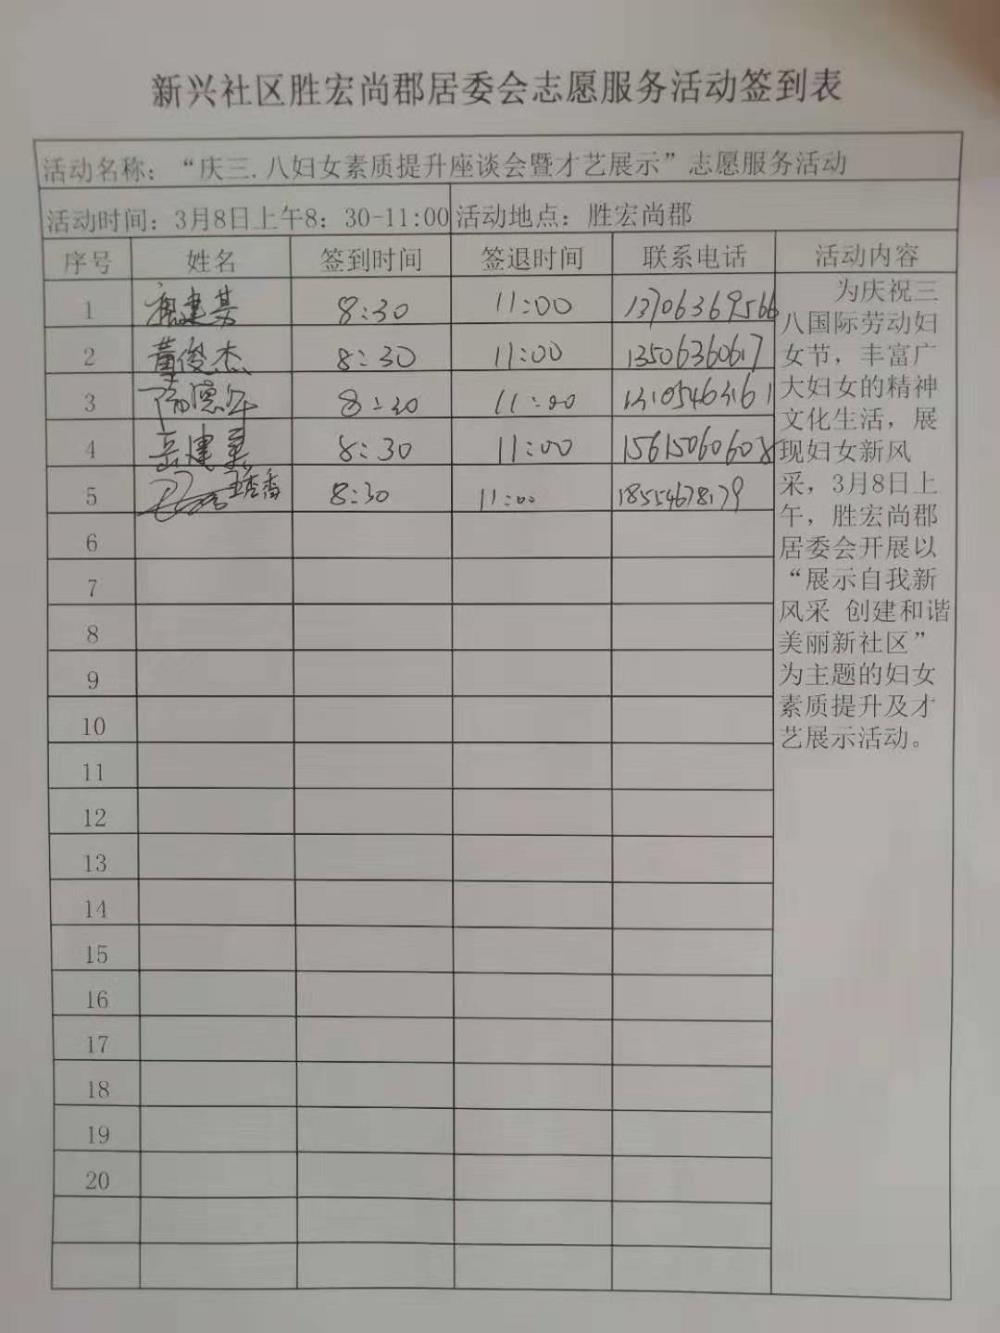 新兴社区胜宏尚郡居委会志愿服务活动签到表
活动名称：“庆三.八妇女素质提升座谈会暨才艺展示”志愿服务活动
活动时间：3月8日上午8：30-11:00 活动地点：胜宏尚郡
序号 姓名 签到时间 签退时间 联系电话 活动内容
1 8:30 11:00 13706369566
2 董俊杰 8:30 11:00 13506360617
3 8:30 11:00
4 岳建 8:30 11:00 15615060608
5 8:30 11:00 18554678179
6
7
8
9
10
11
12
13
14
15
16
17
18
19
20
为庆祝三
八国际劳动妇
女节，丰富广
大妇女的精神
文化生活，展
现妇女新风
采，3月8日上
午，胜宏尚郡
居委会开展以
“展示自我新
风采 创建和谐
美丽新社区”
为主题的妇女
素质提升及才
艺展示活动。